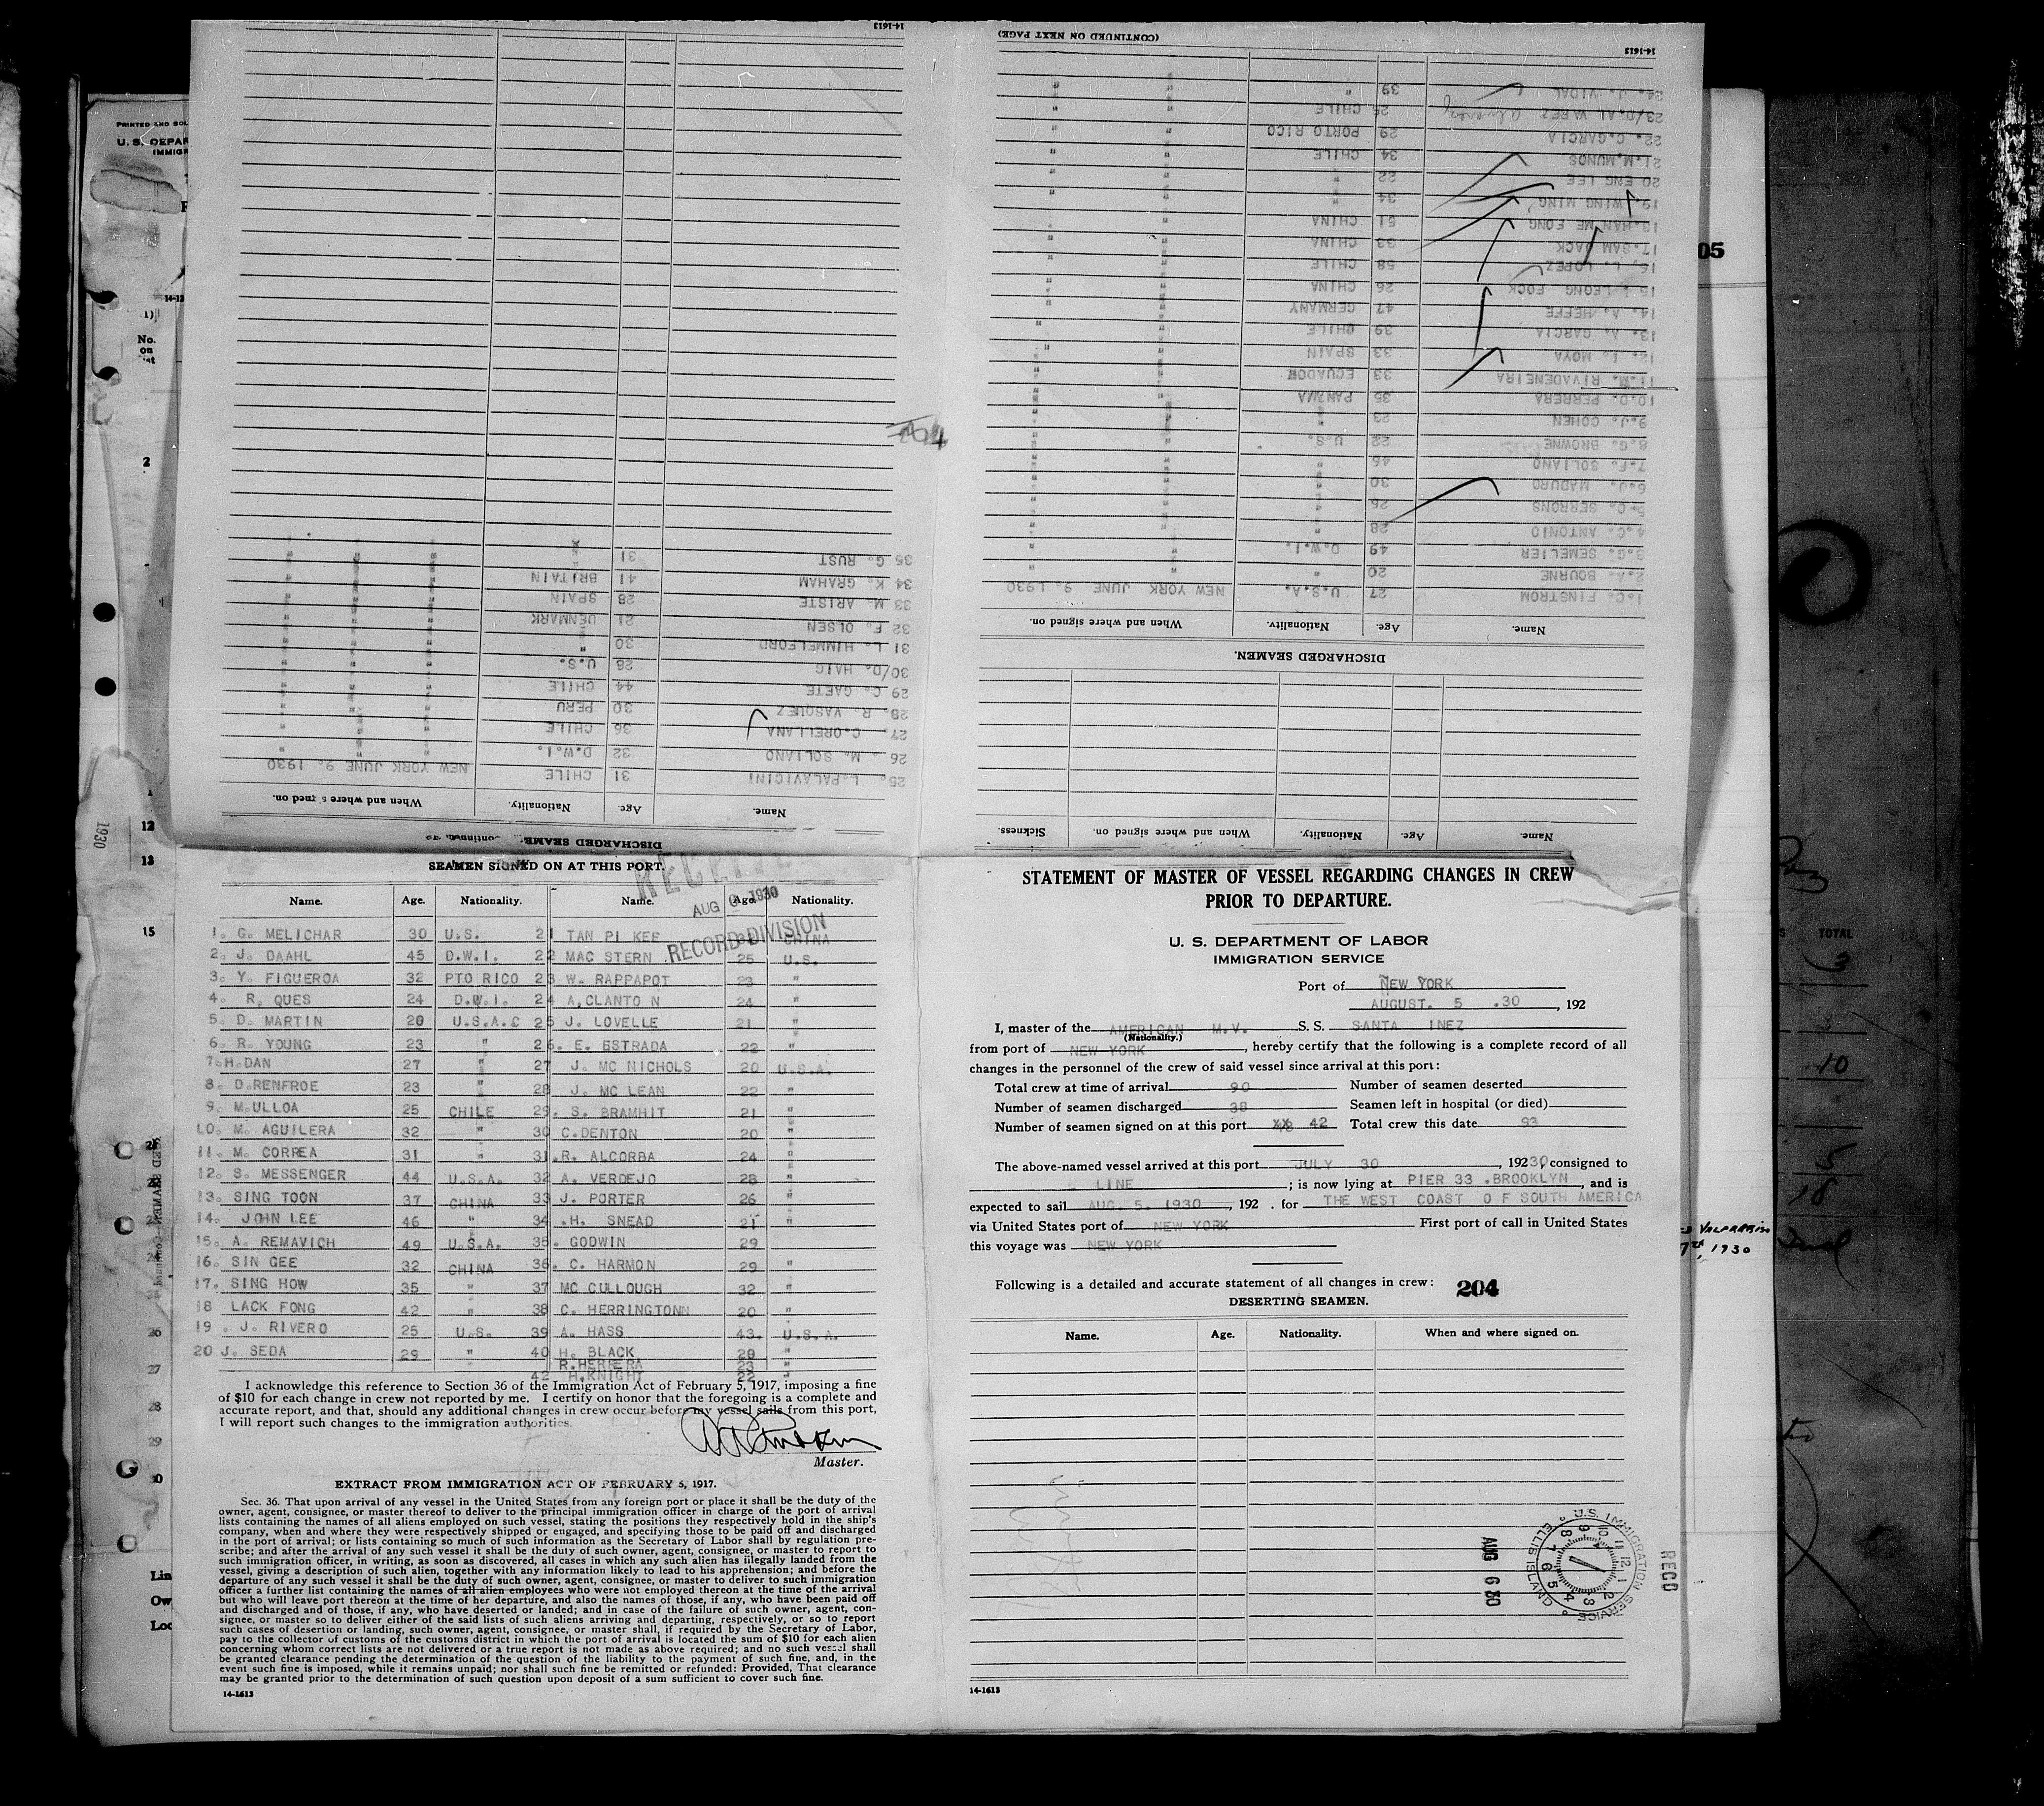 STATEMENT OF MASTER OF VESSEL REGARDING CHANGES IN CREW
PRIOR TO DEPARTURE.
U. S. DEPARTMENT OF LABOR
IMMIGRATION SERVICE
Port of NEW YORK
AUGUST. 5 .30, 192
I, master of the AMERICAN M.V. S. S. SANTA INEZ
(Nationality.)
from port of NEW YORK, hereby certify that the following is a complete record of all
changes in the personnel of the crew of said vessel since arrival at this port:
Total crew at time of arrival 90 Number of seamen deserted
Number of seamen discharged 38 Seamen left in hospital (or died)
Number of seamen signed on at this port 42 Total crew this date 93
The above-named vessel arrived at this port JULY 30, 19230, consigned to
LINE; is now lying at PIER 33 .BROOKLYN, and is
expected to sail AUG. 5. 1930, 192 . for THE WEST COAST OF SOUTH AMERICA
via United States port of NEW YORK First port of call in United States
this voyage was NEW YORK
Following is a detailed and accurate statement of all changes in crew: 204
DESERTING SEAMEN.
Name. Age. Nationality. When and where signed on.
RECD
U.S. IMMIGRATION SERVICE ELLIS ISLAND
AUG 6 30
14-1613
Name. Age. Nationality. When and where signed on. Sickness.
DISCHARGED SEAMEN.
Name. Age. Nationality. When and where signed on.
1.C. FINSTROM 27 U.S.A. NEW YORK JUNE 9. 1930
2.A. BOURNE 20 " " "
3.G. SEMELIER 49 D.W.I. " "
4.C. ANTONIO 28 " " "
5.C. SERRONS 26 " " "
6.J. MADURO 30 " " "
7.F. SOLIANO 46 " " "
8.G. BROWNE 22 U.S. " "
9.J. COHEN 23 " " "
10.D. PERRERA 35 PANAMA " "
11.M. RIVADENEIRA 33 ECUADOR " "
12. I. MOYA 33 SPAIN " "
13. A. GARCIA 39 CHILE " "
14. A. HEFFE 47 GERMANY " "
15. LEONG FOCK 26 CHINA " "
16. L. LOPEZ 58 CHILE " "
17.SAM JACK 33 CHINA " "
18.HAN ME FONG 51 CHINA " "
19. WING MING 34 " " "
20 ENG LEE 22 " " "
21.M.MUNOS 34 CHILE " "
22. C.GARCIA 29 PORTO RICO " "
23/D.AL VAREZ 25 CHILE " "
24. J. VIDAL 39 " " "
(CONTINUED ON NEXT PAGE)
14-1613
DISCHARGED SEAMEN
Name. Age. Nationality. When and where signed on.
25. L.PALAVICINI 31 CHILE NEW YORK JUNE 9. 1930
26 . M. SOLIANO 32 D.W.I. " " "
27. C.ORELLANA 36 CHILE " " "
28. R. VASQUEZ 30 PERU " " "
29 C. GAETE 44 CHILE " " "
30/D. HAIG 26 U.S. " " "
31 L. HIMMELFORD 30 " " " "
32 F. OLSEN 21 DENMARK " " "
33 M. ARISTE 28 SPAIN " " "
34 K. GRAHAM 41 BRITAIN " " "
35 G. RUST 31 " " " "
14-1613
SEAMEN SIGNED ON AT THIS PORT.
RECEIVED
AUG 6 1930
RECORD DIVISION
Name. Age. Nationality. Name. Age. Nationality.
1. G. MELICHAR 30 U.S. 21 TAN PI KEE CHINA
2. J. DAAHL 45 D.W.I. 22 MAC STERN 25 U.S.
3. Y. FIGUEROA 32 PTO RICO 23 W. RAPPAPOT 23 "
4. R. QUES 24 D.W.I. 24 A,CLANTO N 24 "
5. D. MARTIN 20 U.S.A.C 25 J. LOVELLE 21 "
6. R. YOUNG 23 " 26. E. ESTRADA 22 "
7.H.DAN 27 " 27 J. MC NICHOLS 20 U.S.A.
8. D.RENFROE 23 " 28 J. MC LEAN 22 "
9. M.ULLOA 25 CHILE 29. S. BRAMHIT 21 "
10. M. AGUILERA 32 " 30 C.DENTON 20 "
11. M. CORREA 31 " 31.R. ALCORBA 24 "
12. S. MESSENGER 44 U.S.A. 32 A. VERDEJO 28 "
13. SING TOON 37 CHINA 33 J. PORTER 26 "
14. JOHN LEE 46 " 34 .H. SNEAD 21 "
15. A. REMAVICH 49 U.S.A. 35. GODWIN 29
16. SIN GEE 32 CHINA 36. C. HARMON 29 "
17. SING HOW 35 " 37 MC CULLOUGH 32 "
18 LACK FONG 42 " 38 C. HERRINGTON 20 "
19 . J. RIVERO 25 U.S. 39 A. HASS 43. U.S.A.
20 J. SEDA 29 " 40 H. BLACK 28 "
R.HERRERA 23 "
42 H.KNIGHT 22 "
I acknowledge this reference to Section 36 of the Immigration Act of February 5, 1917, imposing a fine
of $10 for each change in crew not reported by me. I certify on honor that the foregoing is a complete and
accurate report, and that, should any additional changes in crew occur before my vessel sails from this port,
I will report such changes to the immigration authorities.
Master.
EXTRACT FROM IMMIGRATION ACT OF FEBRUARY 5, 1917.
Sec. 36. That upon arrival of any vessel in the United States from any foreign port or place it shall be the duty of the
owner, agent, consignee, or master thereof to deliver to the principal immigration officer in charge of the port of arrival
lists containing the names of all aliens employed on such vessel, stating the positions they respectively hold in the ship's
company, when and where they were respectively shipped or engaged, and specifying those to be paid off and discharged
in the port of arrival; or lists containing so much of such information as the Secretary of Labor shall by regulation pre-
scribe; and after the arrival of any such vessel it shall be the duty of such owner, agent, consignee, or master to report to
such immigration officer, in writing, as soon as discovered, all cases in which any such alien has illegally landed from the
vessel, giving a description of such alien, together with any information likely to lead to his apprehension; and before the
departure of any such vessel it shall be the duty of such owner, agent, consignee, or master to deliver to such immigration
officer a further list containing the names of all alien employees who were not employed thereon at the time of the arrival
but who will leave port thereon at the time of her departure, and also the names of those, if any, who have been paid off
and discharged and of those, if any, who have deserted or landed; and in case of the failure of such owner, agent, con-
signee, or master so to deliver either of the said lists of such aliens arriving and departing, respectively, or so to report
such cases of desertion or landing, such owner, agent, consignee, or master shall, if required by the Secretary of Labor,
pay to the collector of customs of the customs district in which the port of arrival is located the sum of $10 for each alien
concerning whom correct lists are not delivered or a true report is not made as above required; and no such vessel shall
be granted clearance pending the determination of the question of the liability to the payment of such fine, and, in the
event such fine is imposed, while it remains unpaid; nor shall such fine be remitted or refunded: Provided, That clearance
may be granted prior to the determination of such question upon deposit of a sum sufficient to cover such fine.
14-1613